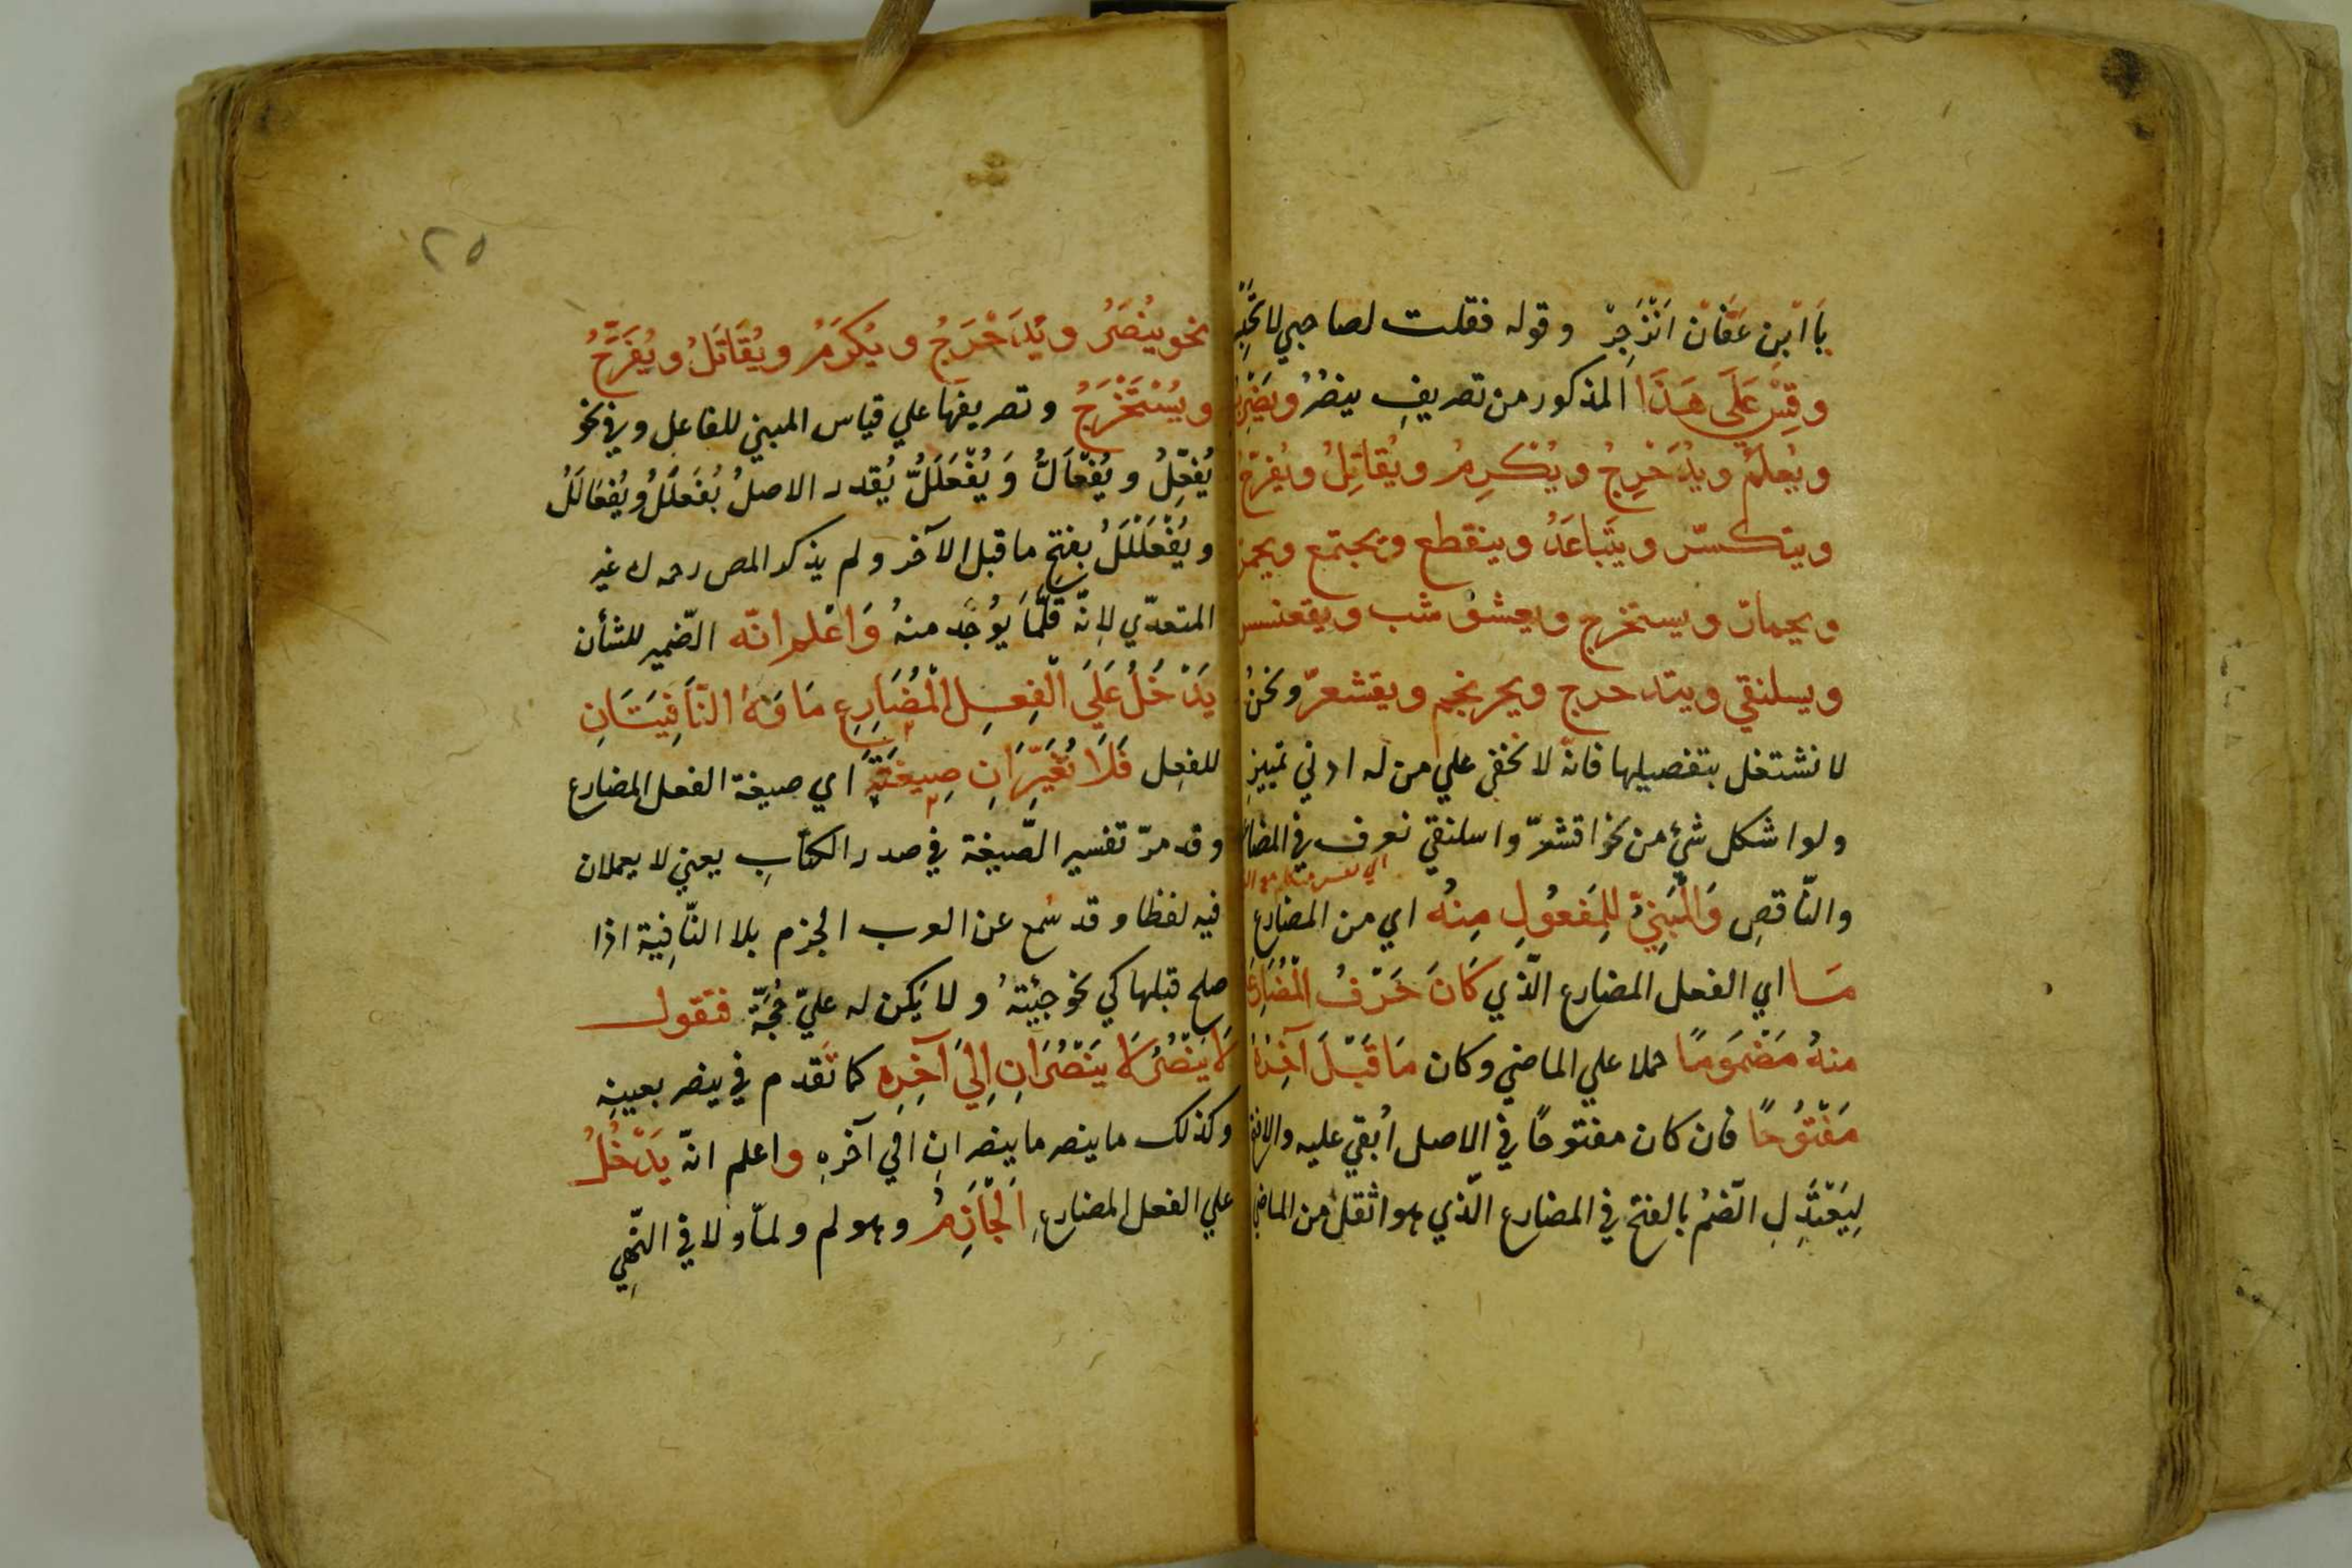 يا ابن عَفّان انْزَجِرْ وقوله فقلت لصاحبي لا
وقِسْ عَلَى هَذَا المذكور من تصريفِ ينصُرُ ويَضْرِبُ
ويُعلَمُ ويُدَحْرِجُ ويُكْرِمُ ويُقَاتِلُ ويُفَرِّحُ
ويتكسّر ويَتَباعَدُ وينقطع ويجتمع ويحمرّ
ويحمارّ ويستخرج ويعشوشب ويقعنسس
ويسلنقي ويتدحرج ويحرنجم ويقشعرّ ونحنُ
لا نشتغل بتفصيلها فانّه لا يخفي علي من له ادني تمييزٍ
ولو اشكل شئ من نحو اقشعرّ واسلنقي نعرف في المضاعف
والنّاقصِ وَالْمَبْنِيُّ لِلْمَفعُولِ مِنْهُ اي من المضارع
مَا اي الفعل المضارع الّذي كَانَ حَرْفُ الْمُضَارِعَةِ
منهُ مَضْمُومًا حملا علي الماضي وكان مَا قَبْلَ آخِرِهِ
مَفْتُوحًا فان كان مفتوحًا في الاصل اُبقي عليه والا فتح
لِيَعْتَدِلَ الضّمُ بالفتح في المضارع الّذي هو اثقل من الماضي
٢٥
نحو يُنْصَرُ ويُدَحْرَجُ ويُكرَمُ ويُقَاتَلُ ويُفَرَّحُ
ويُسْتَخْرَجُ وتصريفها علي قياس المبني للفاعل وفي نحو
يُفْعَلُّ ويُفْعَالُّ وَيُفْعَلَلُّ يُقدر الاصلُ يُفْعَلَلُ ويُفْعَالَلُ
ويُفْعَلْلَلُ بفتحِ ما قبل الآخر ولم يذكر المص رحمه ا غير
المتعدّي لانّه قلّمَا يُوجَد منهُ وَاعْلم انّه الضّمير للشأن
يَدْخُلُ عَلَي الْفِعلِ الْمُضَارِعِ مَا وَلا النّافِيَتَانِ
للفعِل فَلَا تُغَيِّرَانِ صِيغَتَهُ اي صيغة الفعل المضارع
وقد مرّ تفسير الصّيغة في صدر الكتابِ يعني لا يعملان
فيه لفظا وقد سُمع عن العرب الجزم بلا النّافِية اذا
صلح قبلها كي نحو جئِتهُ ولا يَكن له عليّ حُجّة فتقول
لَا يَنْصُرُ لَا يَنْصُرَانِ اِلَي آخِرِهِ كما تَقدم في ينصر بعينِه
وكذلك ما ينصر ما ينصرانِ الي آخرهِ واعلم انّه يَدْخُلُ
علي الفعل المضارعِ اَلْجَازِمُ وهو لم ولمّا ولا في النّهيِ